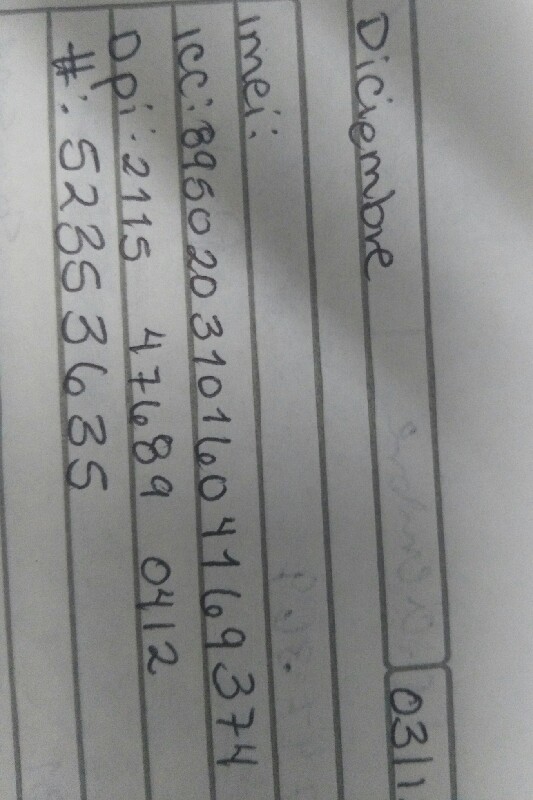 Diciembre 03/1
imei:
icc: 8950203101604169374
Dpi: 2115 47689 0412
#: 52353635